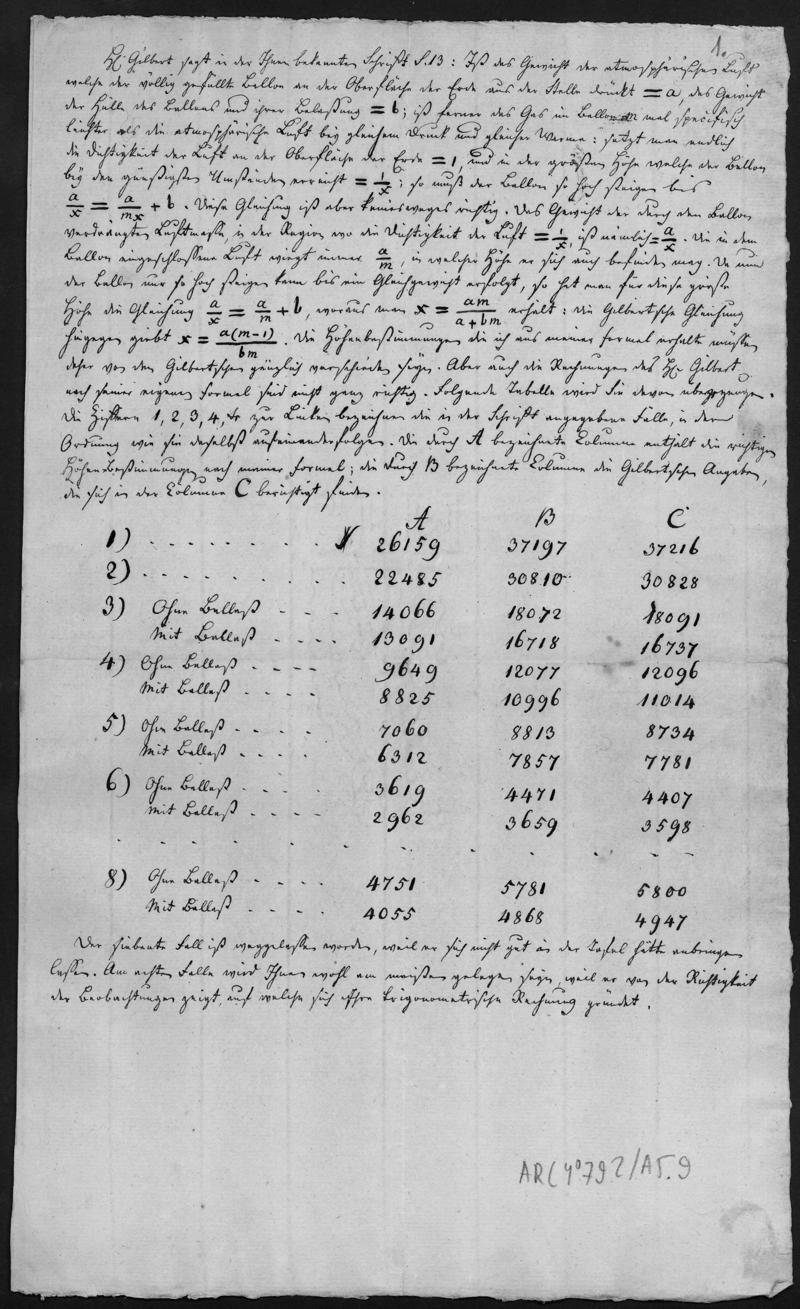 1.
H. Gilbert sagt in der Ihnen bekannten Schrift S. 13: Ist das Gewicht der atmosphärischen Luft
welche der völlig gefüllte Ballon an der Oberfläche der Erde aus der Stelle drückt = a, das Gewicht
der Hülle des Ballons und ihrer Belastung = b; ist ferner das Gas im Ballon m mal specifisch
leichter als die atmosphärische Luft bey gleichem Druck und gleicher Wärme: setzt man endlich
die Dichtigkeit der Luft an der Oberfläche der Erde = 1, und in der größten Höhe welche der Ballon
bey den günstigsten Umständen erreicht = 1/x; so muß der Ballon so hoch steigen bis
a/x = a/mx + b. Diese Gleichung ist aber keineswegs richtig. Das Gewicht der durch den Ballon
verdrängten Luftmasse, in der Region wo die Dichtigkeit der Luft = 1/x, ist nämlich = a/x. Die in dem
Ballon eingeschlossene Luft wiegt immer a/m, in welcher Höhe er sich auch befinden mag. Da nun
der Ballon nur so hoch steigen kann bis ein Gleichgewicht erfolgt, so hat man für diese größte
Höhe die Gleichung a/x = a/m + b, woraus man x = am/a+bm erhält: die Gilbertsche Gleichung
hingegen giebt x = a(m-1)/bm. Die Höhenbestimmungen die ich aus meiner Formel erhalte müssen
daher von den Gilbertschen gänzlich verschieden seyn. Aber auch die Rechnungen des H. Gilbert
nach seiner eigenen Formel sind nicht ganz richtig. Folgende Tabelle wird Sie davon überzeugen.
Die Ziffern 1, 2, 3, 4, &c zur Linken bezeichnen die in der Schrift angegebene Fälle, in der
Ordnung wie sie daselbst aufeinanderfolgen. Die durch A bezeichnete Columne enthält die richtigen
Höhenbestimmungen nach meiner Formel; die durch B bezeichnete Columne die Gilbertschen Angaben,
die sich in der Columne C berichtigt finden.
A B C
1) . . . . . . . 26159 37197 37216
2) . . . . . . . 22485 30810 30828
3) Ohne Ballast - - - 14066 18072 18091
Mit Ballast - - - - 13091 16718 16737
4) Ohne Ballast - - - - 9649 12077 12096
Mit Ballast - - - - 8825 10996 11014
5) Ohne Ballast - - - - 7060 8813 8734
Mit Ballast - - - - 6312 7857 7781
6) Ohne Ballast - - - - 3619 4471 4407
Mit Ballast - - - - 2962 3659 3598
8) Ohne Ballast - - - - 4751 5781 5800
Mit Ballast - - - - 4055 4868 4947
Der siebente Fall ist weggelassen worden, weil er sich nicht gut in der Tafel hätte anbringen
lassen. Am achten Falle wird Ihnen wohl am meisten gelegen seyn, weil er von der Richtigkeit
der Beobachtungen zeigt, auf welche sich Ihre trigonometrische Rechnung gründet.
AR(4°792/A5.9